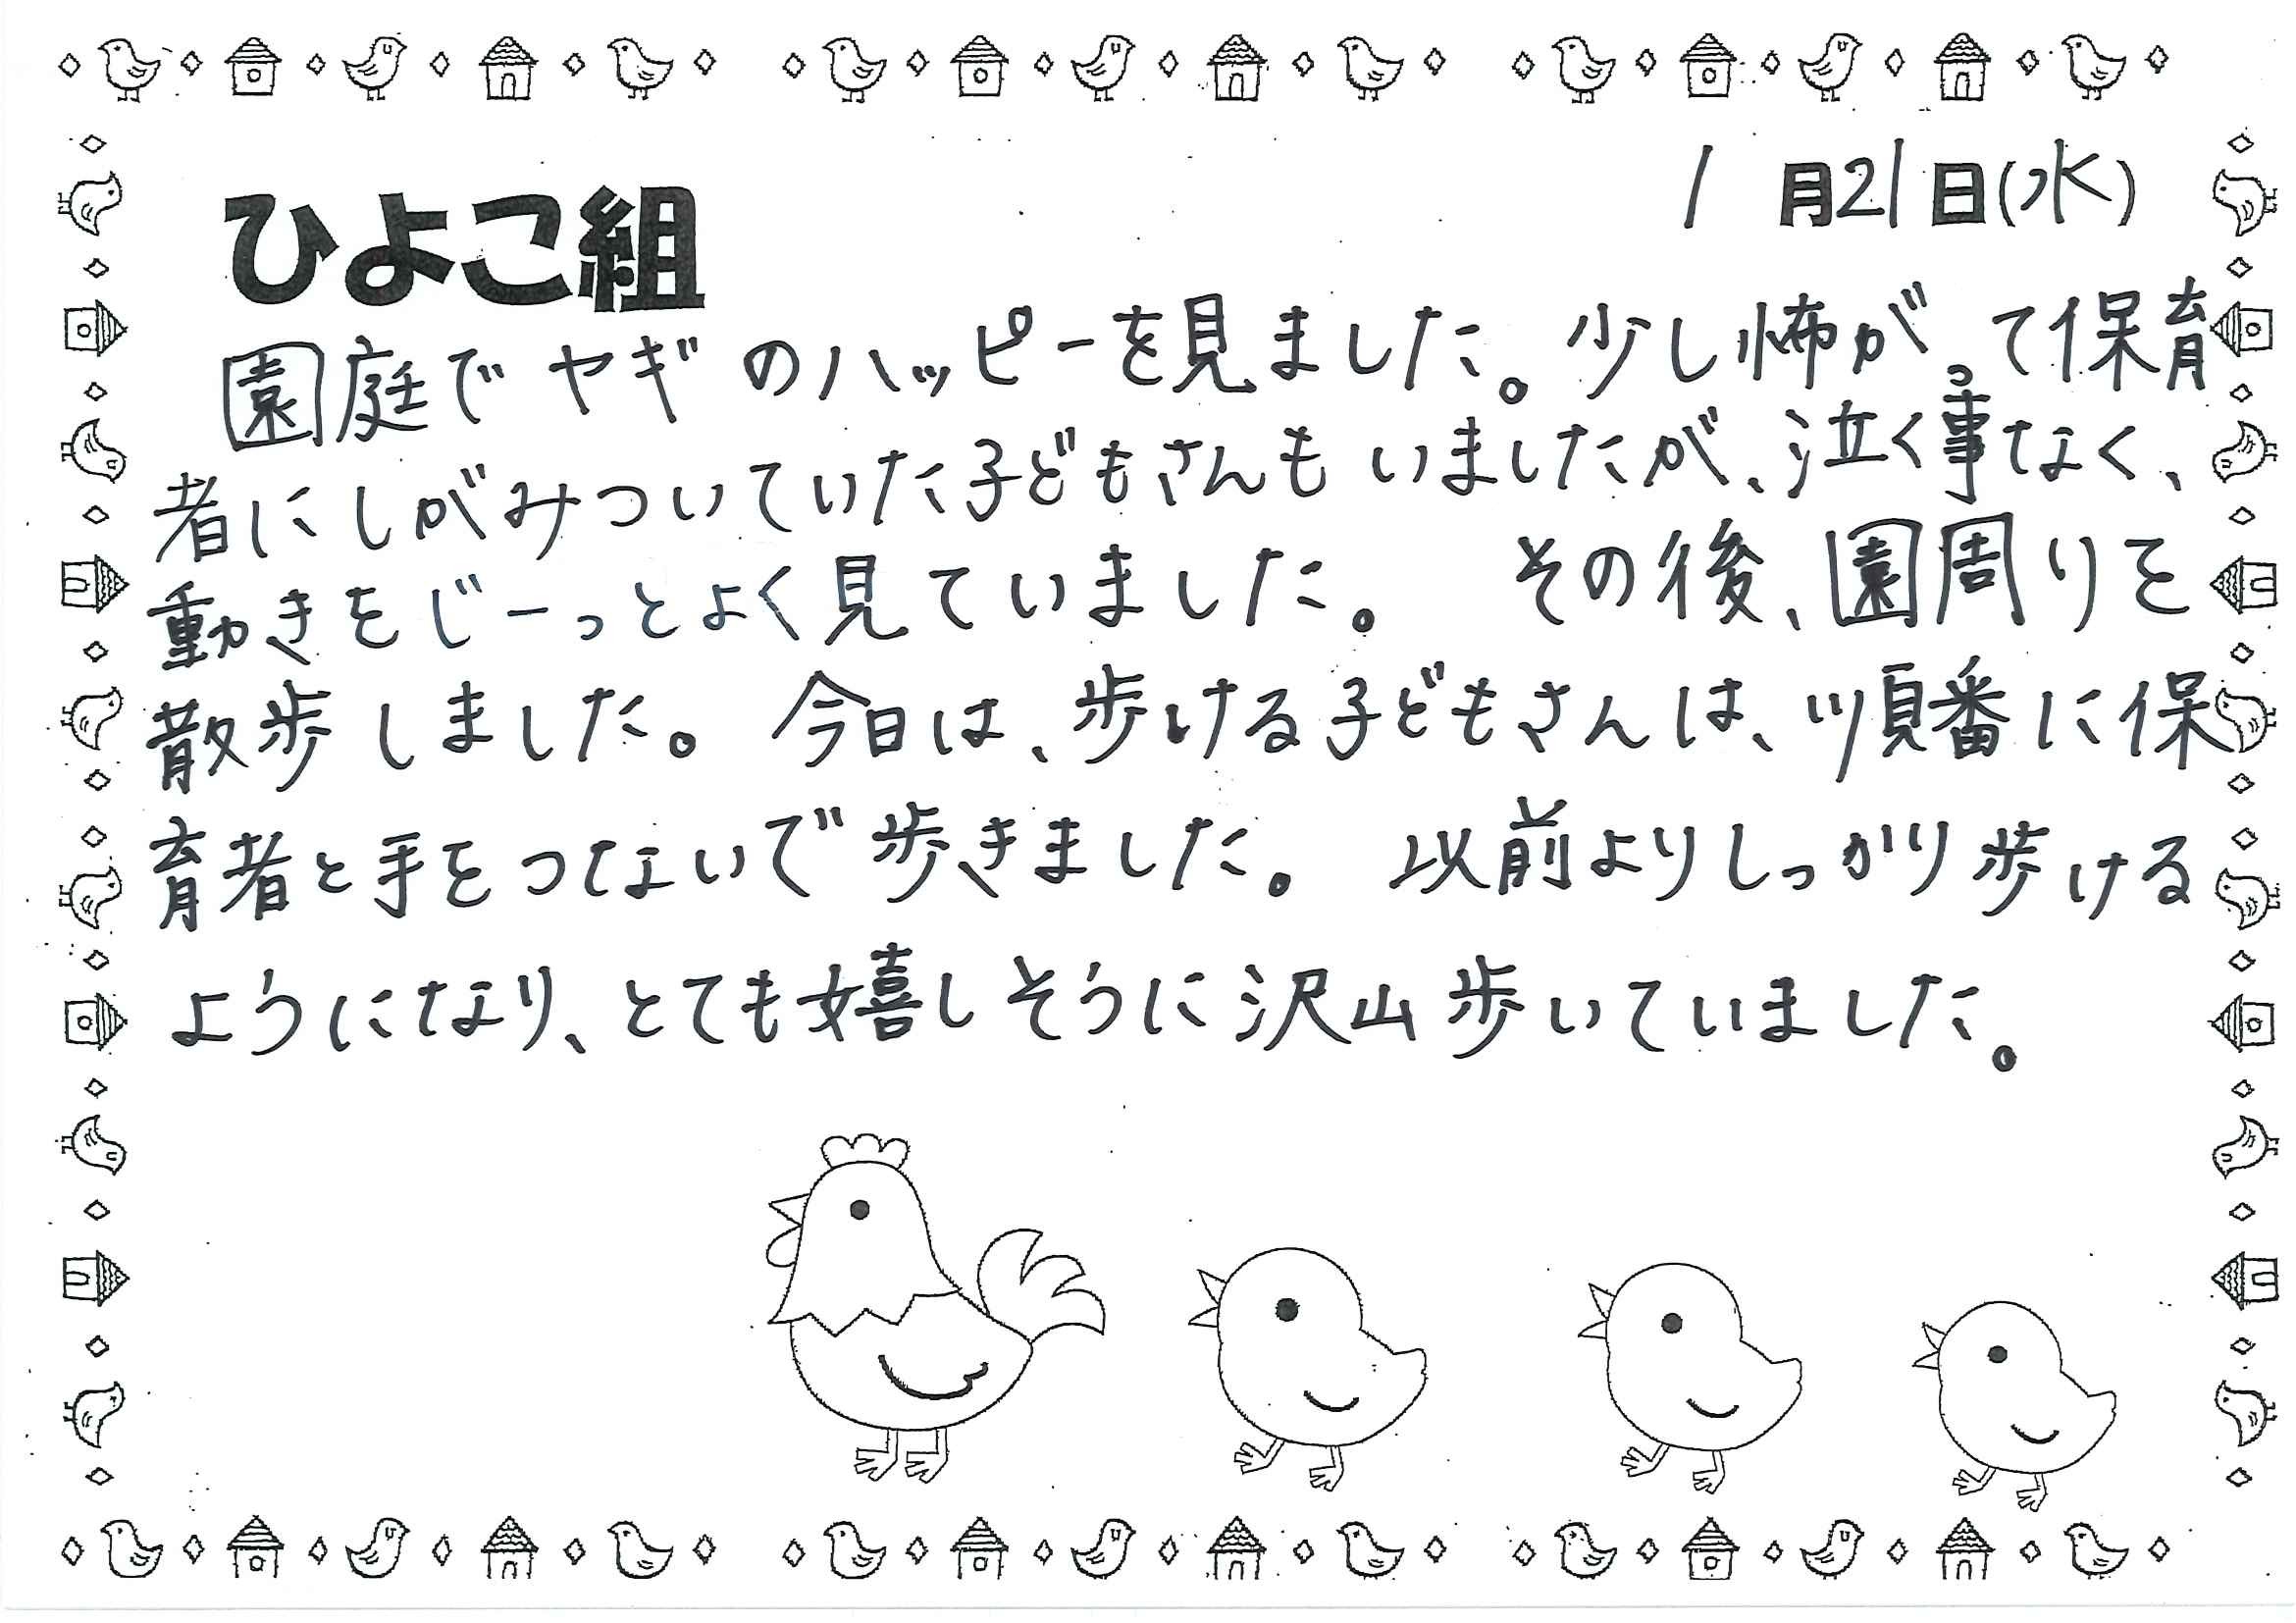 1月21日(水)
ひよこ組
園庭でヤギのハッピーを見ました。少し怖がって保育
者にしがみついていた子どもさんもいましたが、泣く事なく、
動きをじーっとよく見ていました。その後、園周りを
散歩しました。今日は、歩ける子どもさんは、順番に保
育者と手をつないで歩きました。以前よりしっかり歩ける
ようになり、とても嬉しそうに沢山歩いていました。